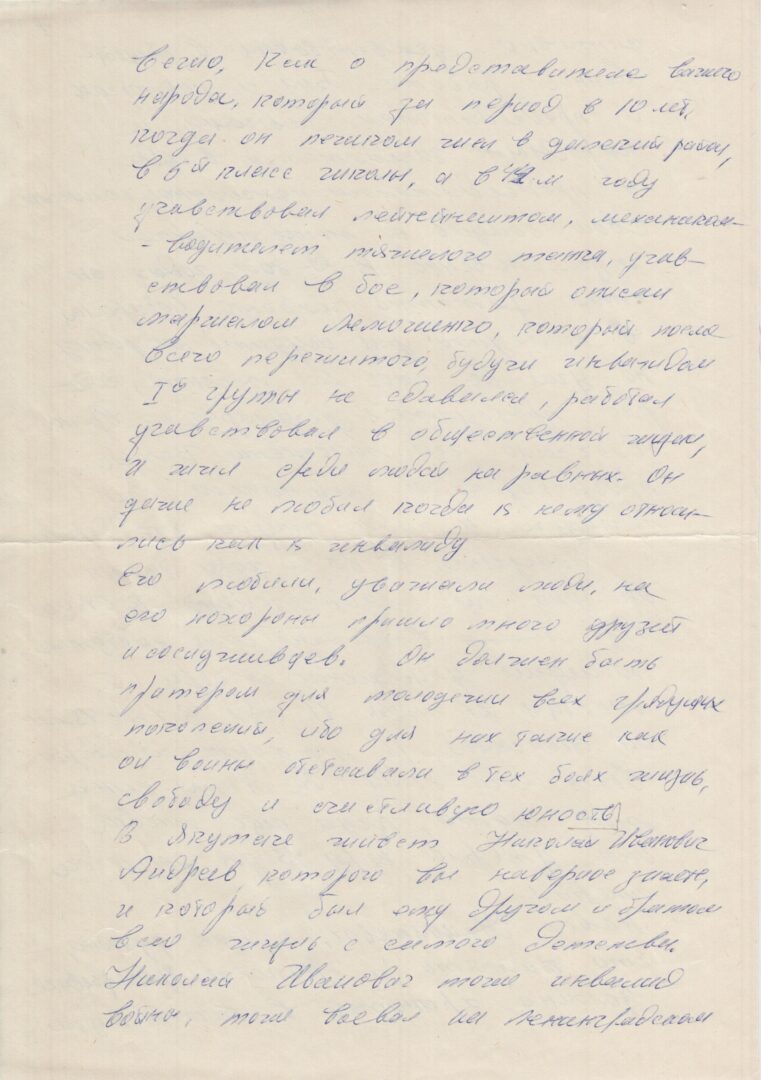 всего, как о представителе вашего
народа, который за период в 10 лет,
когда он пешком шел в далекий район,
в 5й класс школы, а в 44м году
учавствовал лейтенантом, механиком-
-водителем тяжелого танка, учав-
ствовал в бое, который описан
маршалом Лелюшенко, который после
всего пережитого, будучи инвалидом
Iой группы не сдавался, работал
учавствовал в общественной жизни,
и жил среди людей на равных. Он
даже не любил когда к нему относи-
лись как к инвалиду
Его любили, уважали люди, на
его похороны пришло много друзей
и сослуживцев. Он должен быть
примером для молодежи всех грядущих
поколений, ибо для них такие как
он воины отстаивали в тех боях жизнь,
свободу и счастливую юность
В Якутске живет Николай Иванович
Андреев которого вы наверное знаете,
и который был ему другом и братом
всю жизнь с самого детства.
Николай Иванович тоже инвалид
войны, тоже воевал на ленинградском